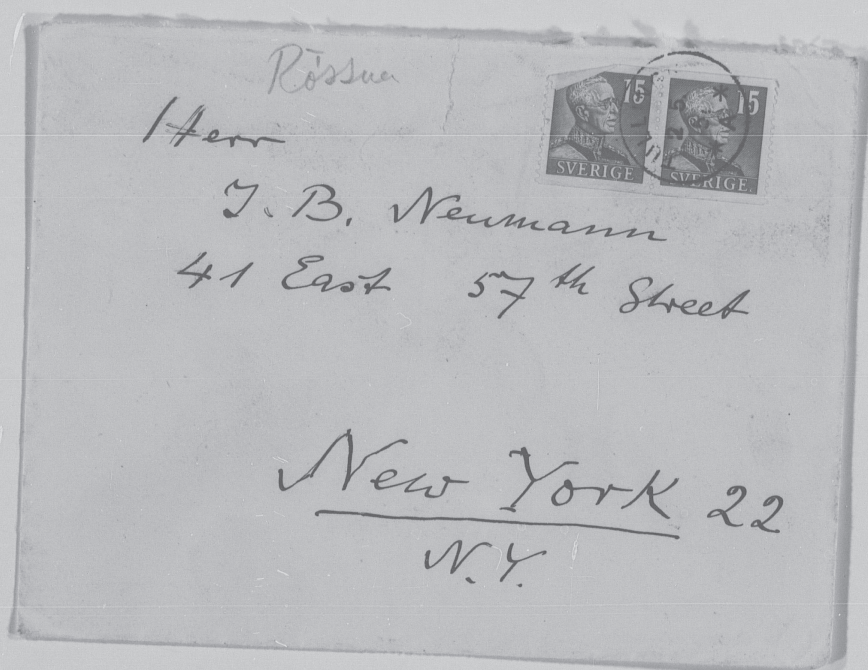 Rössner
15 15
SVERIGE SVERIGE
Herr
J. B. Neumann
41 East 57th Street
New York 22
N.Y.